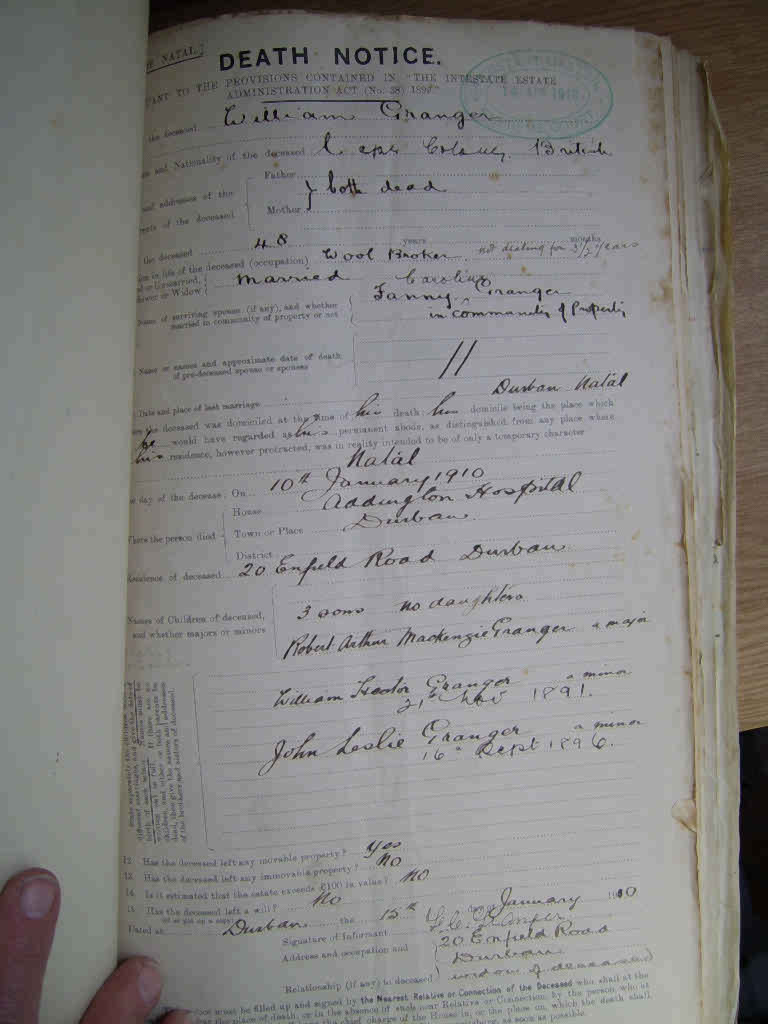 NATAL.]
DEATH NOTICE.
TO THE PROVISIONS CONTAINED IN "THE INTESTATE ESTATE
ADMINISTRATION ACT (No. 38) 1899"
the deceased William Granger
and Nationality of the deceased Cape Colony. British
Father
and addresses of the } both dead
of the deceased Mother
the deceased 48 years months
in life of the deceased (occupation) Wool Broker not dealing for 3½ years
or Unmarried,
or Widow Married Caroline
Name of surviving spouse (if any), and whether Fanny Granger
married in community of property or not in community of Property
Name or names and approximate date of death
of pre-deceased spouse or spouses //
Date and place of last marriage Durban Natal
deceased was domiciled at the time of his death his domicile being the place which
he would have regarded as his permanent abode, as distinguished from any place where
his residence, however protracted, was in reality intended to be of only a temporary character
Natal
day of the decease, On 10th January 1910
House Addington Hospital
Where the person died Town or Place Durban
District
Residence of deceased 20 Enfield Road Durban
Names of Children of deceased, 3 sons no daughters
and whether majors or minors Robert Arthur Mackenzie Granger a major
William Hector Granger a minor
21st Nov 1891.
John Leslie Granger a minor
16th Sept 1896.
12. Has the deceased left any movable property? Yes
13. Has the deceased left any immovable property? No
14. Is it estimated that the estate exceeds £100 in value? No
15. Has the deceased left a will? No
Dated at Durban the 15th day of January 1910
Signature of Informant
Address and occupation and 20 Enfield Road
Durban
Relationship (if any) to deceased widow of deceased
must be filled up and signed by the Nearest Relative or Connection of the Deceased who shall at the
the place of death, or in the absence of such near Relative or Connection, by the person who at
chief charge of the House in, or the place on, which the death shall
as soon as possible.